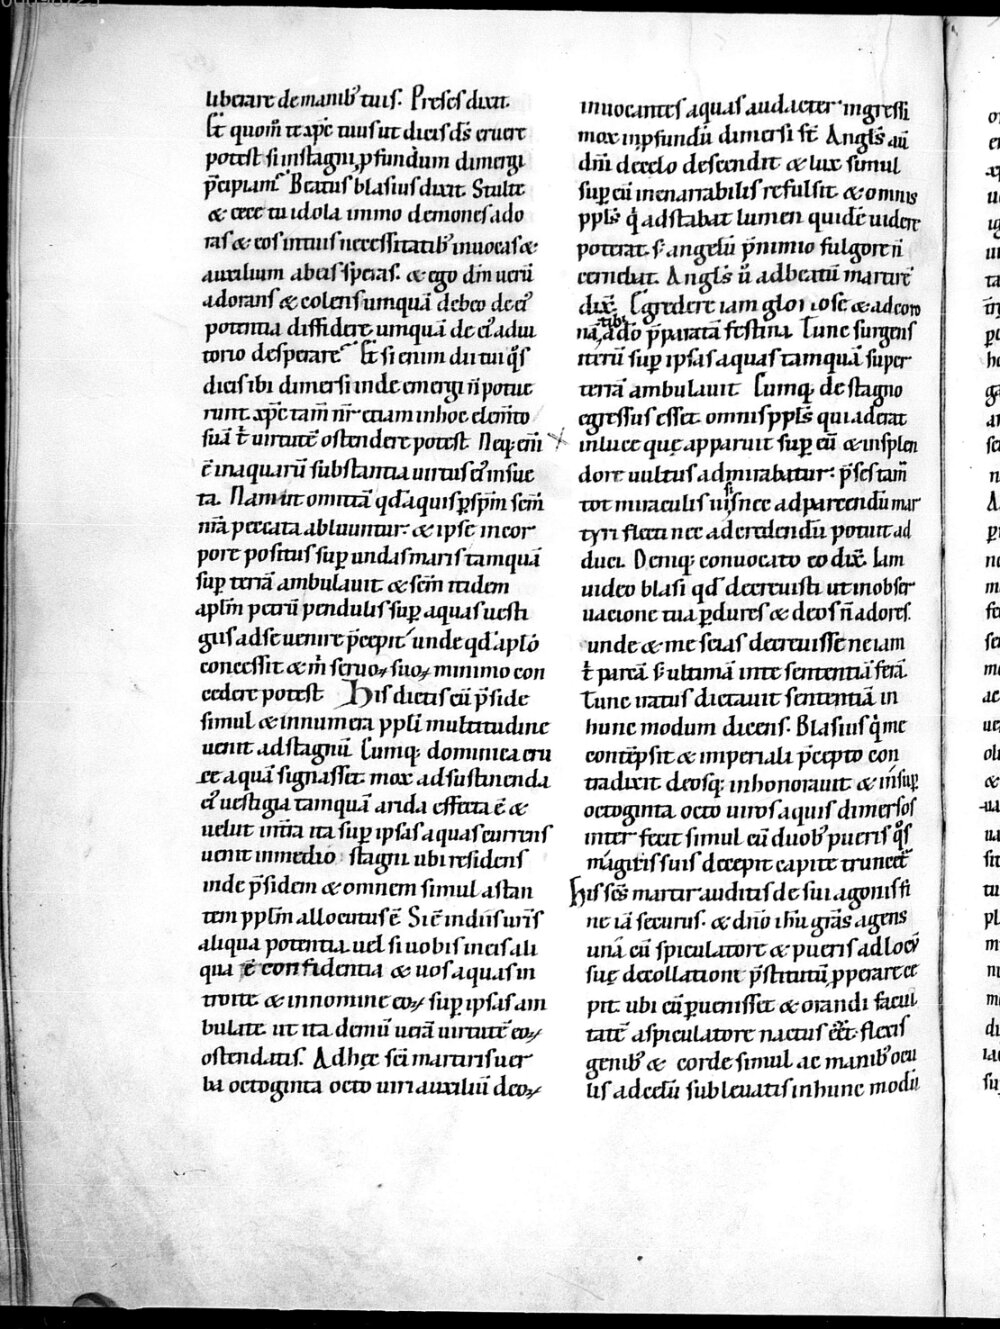 liberare de manib; tuis. Preses dixit.
Et quom̄ te xp̄c tuus ut dicis d̄s eruere
potest si in stagni ꝓfundum dimergi
p̄cipiam̄. Beatus blasius dixit. Stulte
& cece tu idola immo demones ado
ras & eos in tuis necessitatib; inuocas &
auxilium ab eis speras. & ego dn̄m uerū
adorans & colens umquā debeo de ei᾽
potentia diffidere umquā de ei᾽ adiu
torio desperare. Et si enim dii tui q̊s
dicis ibi dimersi inde emergi n̄ potue
runt. xp̄c tam̄ n̄r etiam in hoc elem̄to
suā ī uirtutē ostendere potest. Neq; eni᷉
ē in aquarū substantia uirtus ei᾽ insue
ta. Nam ut omittā qd̓ aquis ꝑ sp̄m sc̄m
n̄ra peccata abluuntur. & ipse in cor
pore positus suꝑ undas maris tamquā
suꝑ terrā ambulauit. & sc̄m itidem
apl̄m petrū pendulis suꝑ aquas uesti
giis ad se uenire p̄cepit. unde qd̓ aplo̅
concessit & m̄ seruoꝝ suoꝝ minimo con
cedere potest. His dictis cū p̄side
simul & innumera pp̄li multitudine
uenit ad stagnū. Cumq; dominica cru
ce aquā signasset. mox ad sustinenda
ei᾽ uestigia tamquā arida effecta ē &
uelut in t̄ra ita suꝑ ipsas aquas currens
uenit in medio stagni ubi residens
inde p̄sidem & omnem simul astan
tem pp̄lm allocutus ē. Si ē in diis ur̄is
aliqua potentia uel si uobis in eis ali
qua ē confidentia & uos aquas in
troite & in nomine eoꝝ suꝑ ipsas am
bulate ut ita demū uerā uirtutē eoꝝ
ostendatis. Ad hęc sc̄i martiris uer
ba octoginta octo uiri auxiliū deoꝝ
inuocantes aquas audacter ingressi
mox in ꝓfundū dimersi st̄. Angl̄s aū
dn̄i de celo descendit & lux simul
suꝑ eū inenarrabilis refulsit & omnis
pp̄ls q̇ adstabat lumen quidē uidere
poterat. s; angelū p̄ nimio fulgore n̄
cernebat. Angl̄s ū ad beatū martirē
dix̄. Egredere iam gloriose & ad coro
nā tibi a do p̄paratā festina. Tunc surgens
iterū suꝑ ipsas aquas tamquā super
terrā ambulauit. Cumq; de stagno
egressus esset. omnis pp̄ls qui aderat
in luce quę apparuit suꝑ eū & in splen
dore uultus admirabatur. p̄ses tam̄
tot miraculis uisis nec ad parcendū mar
tyri flecti nec ad credendū potuit ad
duci. Deniq; conuocato eo dix̄. Iam
uideo blasi qd̓ decreuisti ut in obser
uacione tua ꝑdures & deos n̄ adores.
unde & me scias decreuisse ne iam
t̄ parcā s; ultimā in te sententiā ferā.
Tunc iratus dictauit sententiā in
hunc modum dicens. Blasius q̇ me
contēpsit & imperiali p̄cepto con
tradixit deosq; inhonorauit & insuꝑ
octoginta octo uiros aquis dimersos
inter fecit simul cū duob; pueris q̊s
magicis suis decepit capite truncet᷑.
His sc̄s martir auditis de sui agonis fi
ne iā securus. & dn̄o ih̄u gr̄as agens
unā cū spiculatore & pueris ad locū
suę decollationi p̄stitutū ꝓperare ce
pit. ubi cū ꝑuenisset & orandi facul
tatē a spiculatore nactus eēt. flexis
genib; & corde simul ac manib; ocu
lis ad cęlū subleuatis in hunc modū